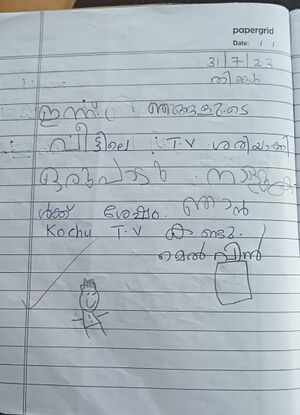 papergrid
Date: / /
31/7/23
തിങ്കൾ
ഇന്ന് ഞങ്ങളുടെ
വീട്ടിലെ T.V ശരിയാക്കി
ഒരുപാട് നാളു
കൾക്ക് ശേഷം ഞാൻ
Kochu T.V കണ്ടു.